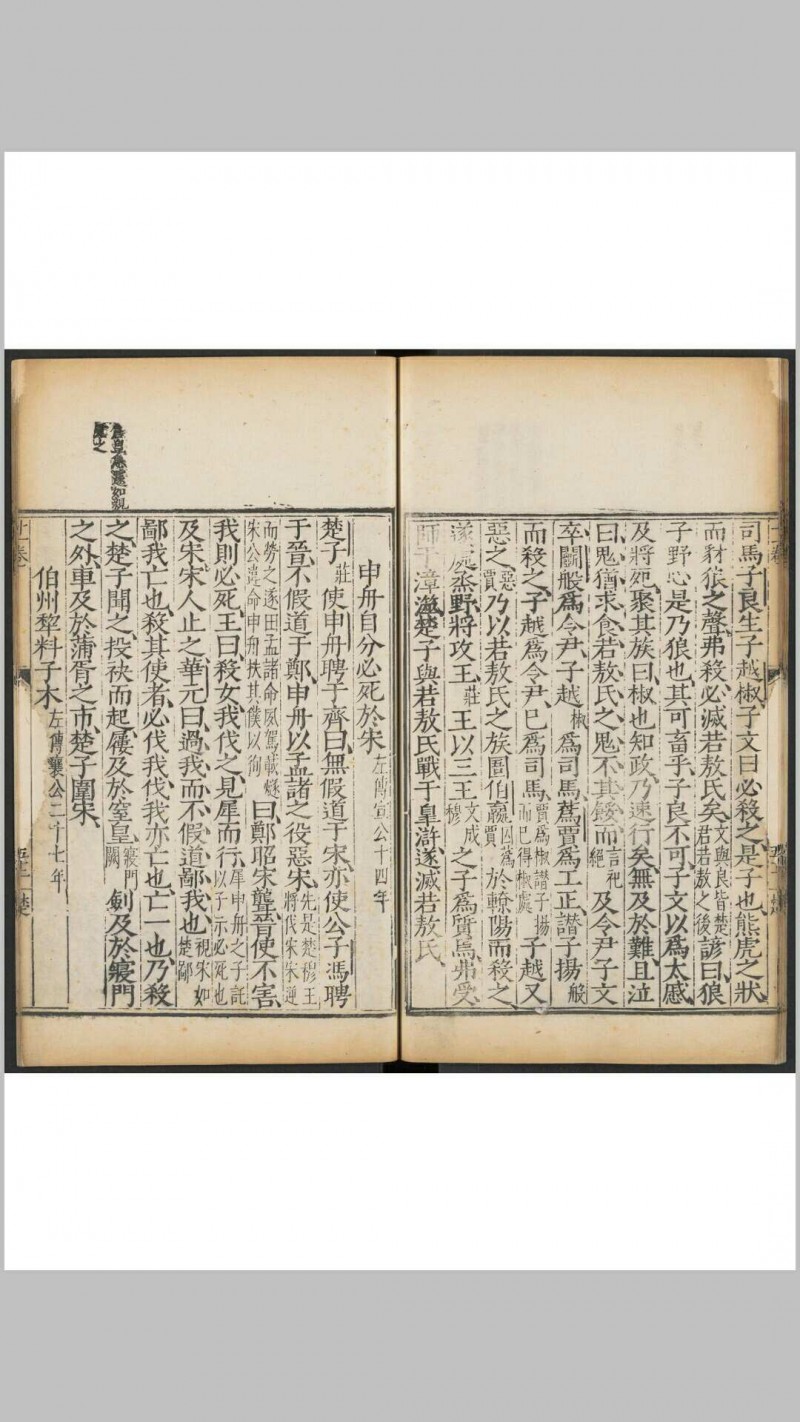 司馬子良生子越椒子文曰必殺之是子也熊虎之狀
而豺狼之聲弗殺必滅若敖氏矣文與良皆楚君若敖之後諺曰狼
子野心是乃狼也其可畜乎子良不可子文以為太慼
及將死聚其族曰椒也知政乃速行矣無及於難且泣
曰鬼猶求食若敖氏之鬼不其餒而言祀絕及令尹子文
卒鬬般為令尹子越椒為司馬蒍賈為工正譖子揚般
而殺之子越為令尹已為司馬賈為椒譖子揚而已得椒處子越又
惡之惡賈乃以若敖氏之族圄伯嬴囚蒍賈於轑陽而殺之
遂處烝野將攻王莊王以三王文成穆之子為質焉弗受
師于漳澨楚子與若敖氏戰于皋滸遂滅若敖氏
申舟自分必死於宋左傳宣公十四年
楚子莊使申舟聘于齊曰無假道于宋亦使公子馮聘
于晉不假道于鄭申舟以孟諸之役惡宋先是楚穆王將伐宋宋逆
而勞之遂田孟諸命夙駕載燧宋公違命申舟抶其僕以徇曰鄭昭宋聾晉使不害
我則必死王曰殺女我伐之見犀而行犀申舟之子託以子示必死也
及宋宋人止之華元曰過我而不假道鄙我也視宋如楚鄙
鄙我亡也殺其使者必伐我伐我亦亡也亡一也乃殺
之楚子聞之投袂而起屨及於窒皇寢門闕劍及於寢門
之外車及於蒲胥之市楚子圍宋
伯州犁料子木左傳襄公二十七年